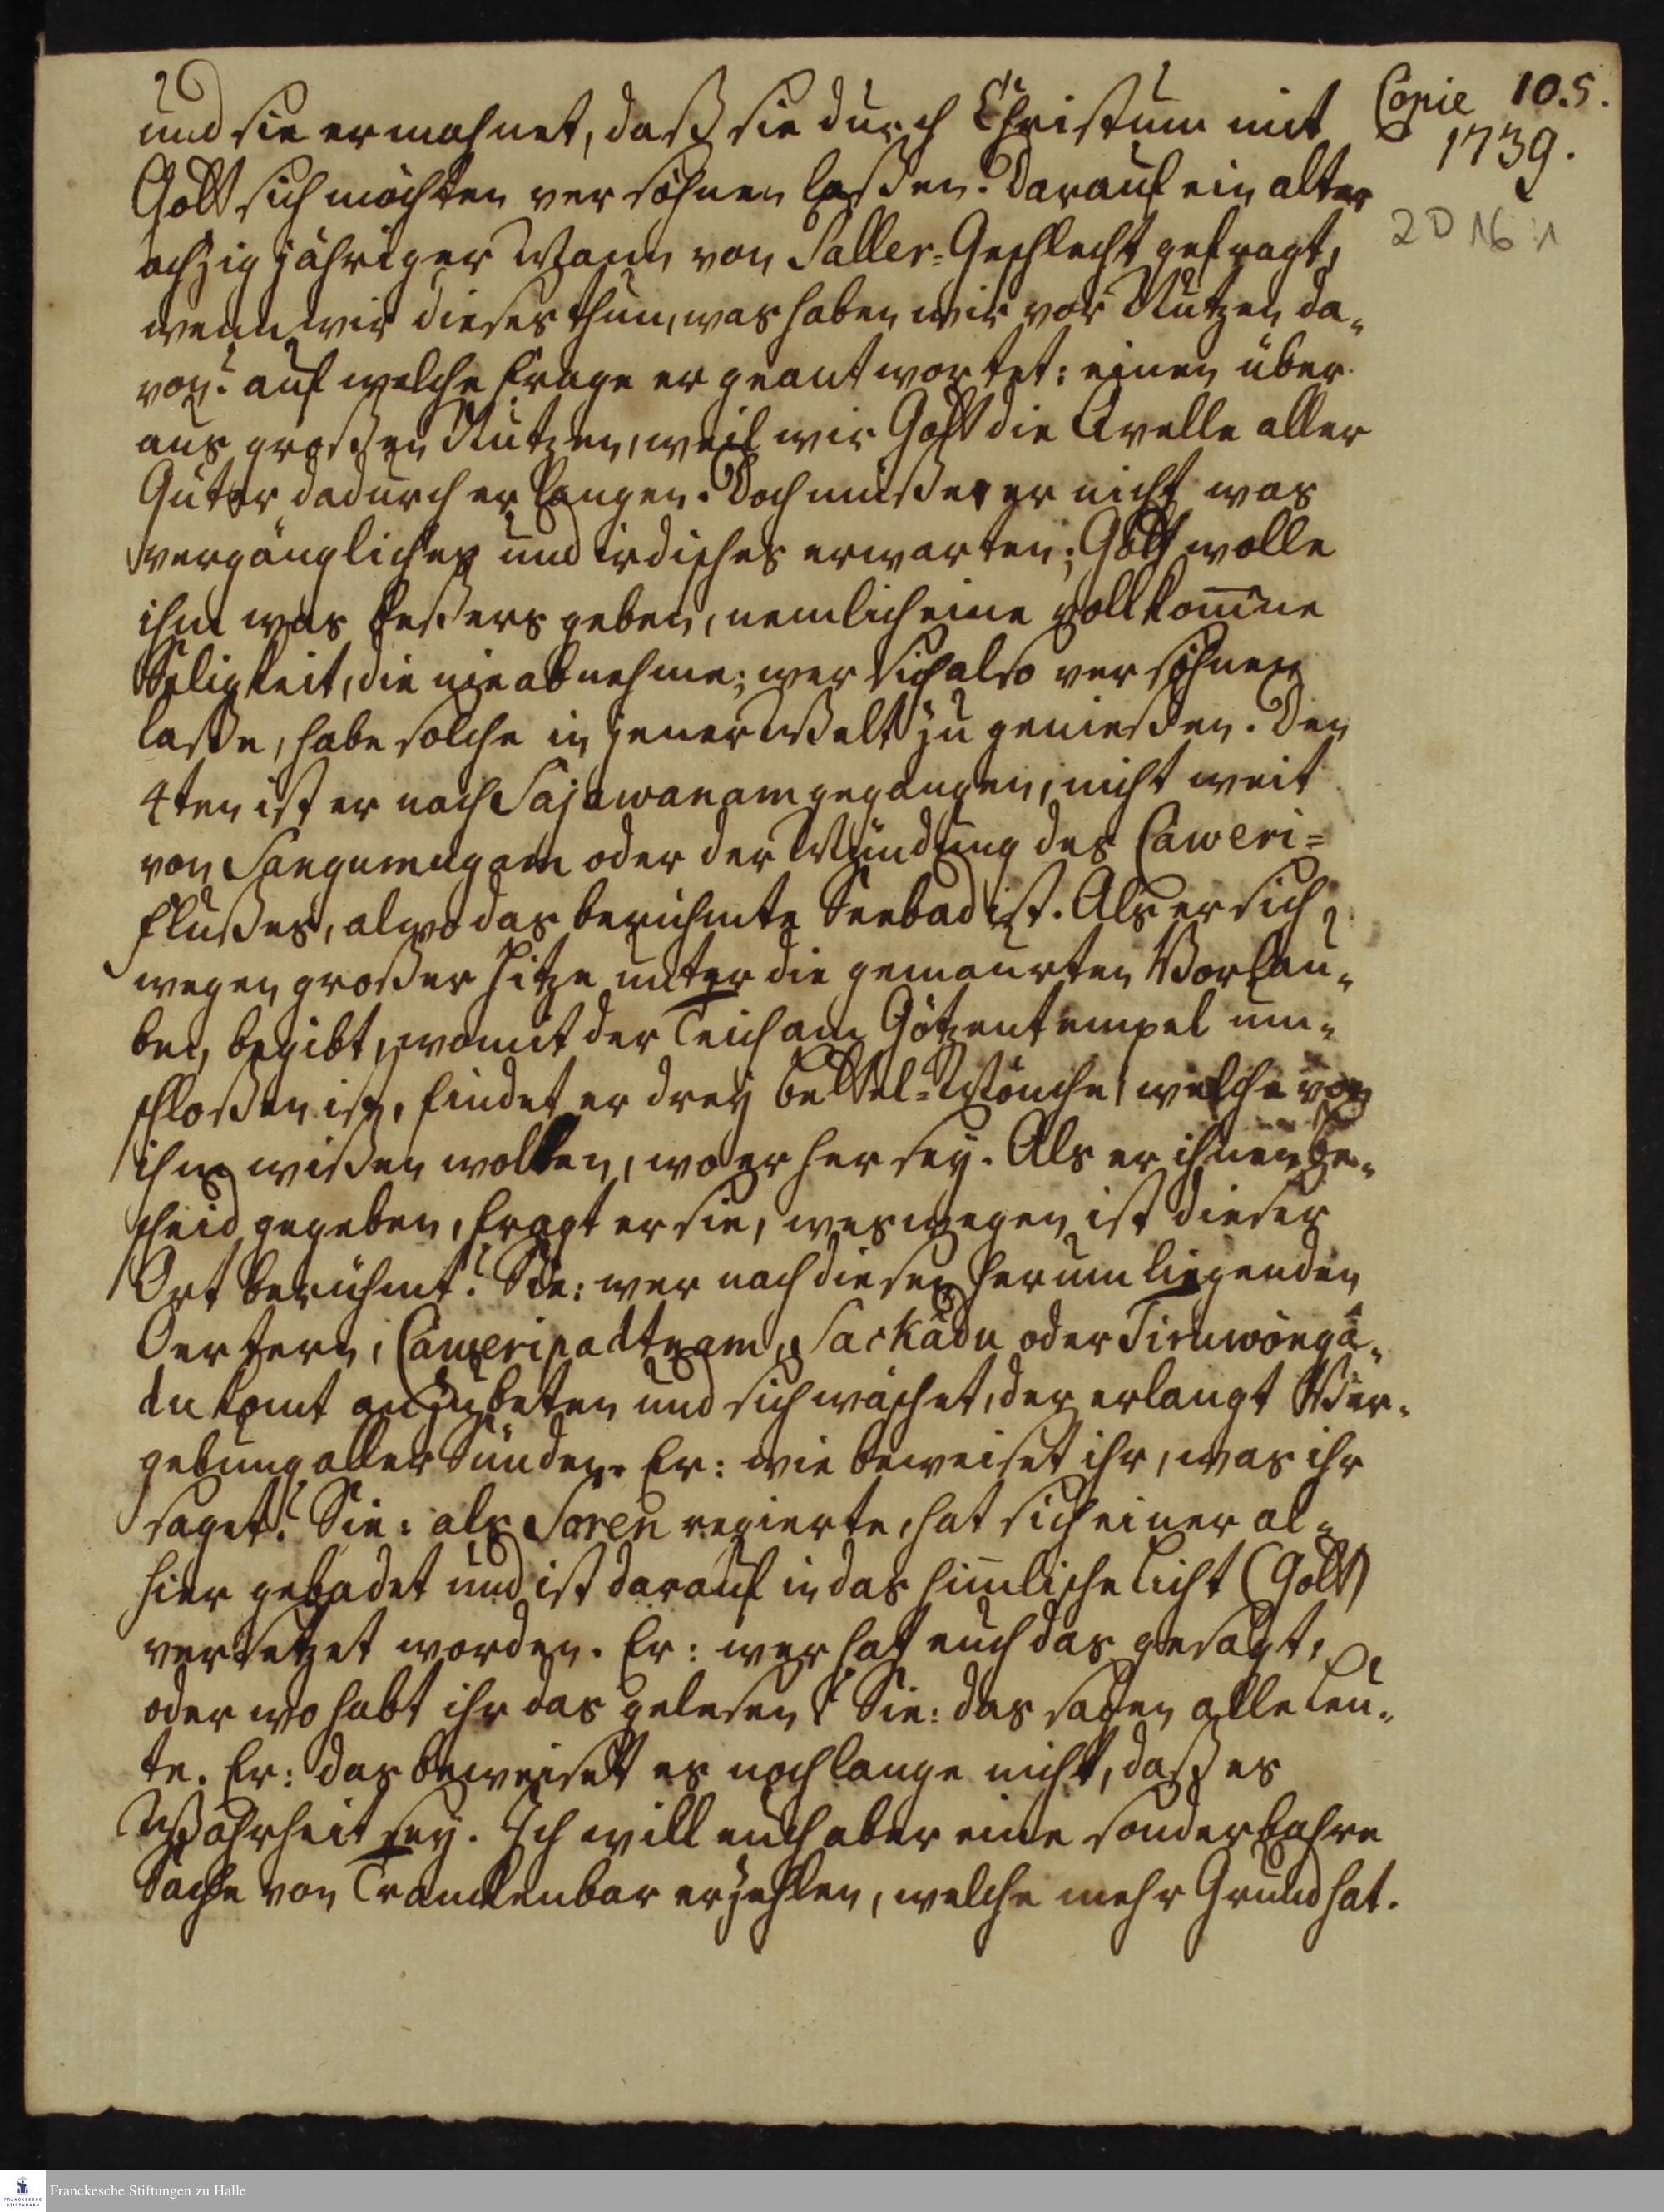 Copie 10.5.
1739.
2 D 16 : 1
und sie ermahnet, daß sie durch Christum mit
Gott sich möchten versöhnen laßen. Darauf ein alter
achzig jähriger Mann von Saller-Geschlecht gefragt,
wenn wir dieses thun, was haben wir vor Nutzen da-
von? auf welche Frage er geantwortet: einen über-
aus großen Nutzen, weil wir Gott die Qvelle aller
Güter dadurch erlangen. Doch müße er nicht was
vergängliches und irdisches erwarten; Gott wolle
ihm was beßers geben, nemlich eine vollkom̄ne
Seligkeit, die nie abnehme; wer sich also versöhnen
laße, habe solche in jener Welt zu genießen. Den
4ten ist er nach Sajawanam gegangen, nicht weit
von Sangumugam oder der Mündung des Caweri=
Flußes, alwo das berühmte Seebad ist. Als er sich
wegen großer Hitze unter die gemaurten Vorlau-
ben, begibt, womit der Teich am Götzentempel um-
schloßen ist, findet er drey Bettel-Mönche, welche von
ihm wißen wolten, wo er her sey. Als er ihnen Be-
scheid gegeben, fragt er sie, weswegen ist dieser
Ort berühmt? Sie: wer nach diesen herumliegenden
Oertern, Caweripadtnam, Sackádu oder Tiruwöngá-
du komt anzubeten und sich wäschet, der erlangt Ver-
gebung aller Sünden. Er: wie beweiset ihr, was ihr
saget? Sie: als Soren regierte, hat sich einer al-
hier gebadet und ist darauf in das him̄lische Licht (Gott)
versetzet worden. Er: wer hat euch das gesagt,
oder wo habt ihr das gelesen? Sie: das sagen alle Leu-
te. Er: das beweiset es noch lange nicht, daß es
Wahrheit sey. Ich will euch aber eine sonderbahre
Sache von Trankenbar erzehlen, welche mehr Grund hat.
Franckesche Stiftungen zu Halle
FRANCKESCHE
STIFTUNGEN